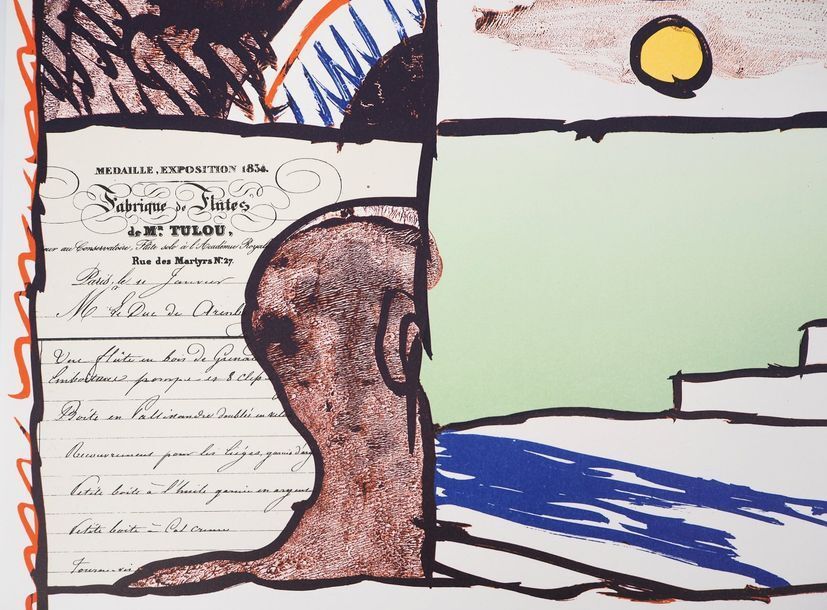 MEDAILLE, EXPOSITION 1834.
Fabrique de Flûtes
de Mr. TULOU,
au Conservatoire, Flûte solo à l'Académie Royal
Rue des Martyrs No. 27.
Paris, le 11 Janvier
M Le Duc de
Une flûte en bois de Grena
Embouchure pompe et 8 clefs
Boîte en Pallisandre doublée en velo
Recouvrement pour les lièges, garnie d'arg
Petite boîte à l'huile garnie en argent
Petite boîte à Col crème